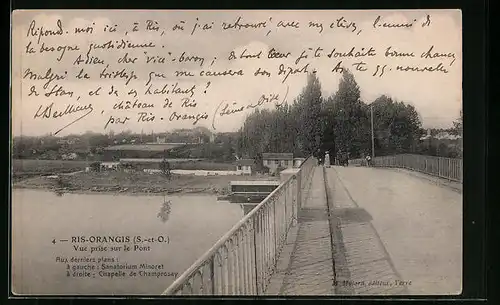 Répond-moi ici, à Ris, où j'ai retrouvé, avec mes élèves, l'ennui de
la besogne quotidienne.
Adieu, cher "vice"-baron; de tout cœur je te souhaite bonne chance,
Malgré la tristesse que me causera ton départ. As-tu qq. nouvelles
de Stan, et de ses habitants?
château de Ris
par Ris-Orangis (Seine et Oise)
4 — RIS-ORANGIS (S.-et-O.)
Vue prise sur le Pont
Aux derniers plans:
à gauche: Sanatorium Minoret
à droite: Chapelle de Champrosay
éditeur, Yerre